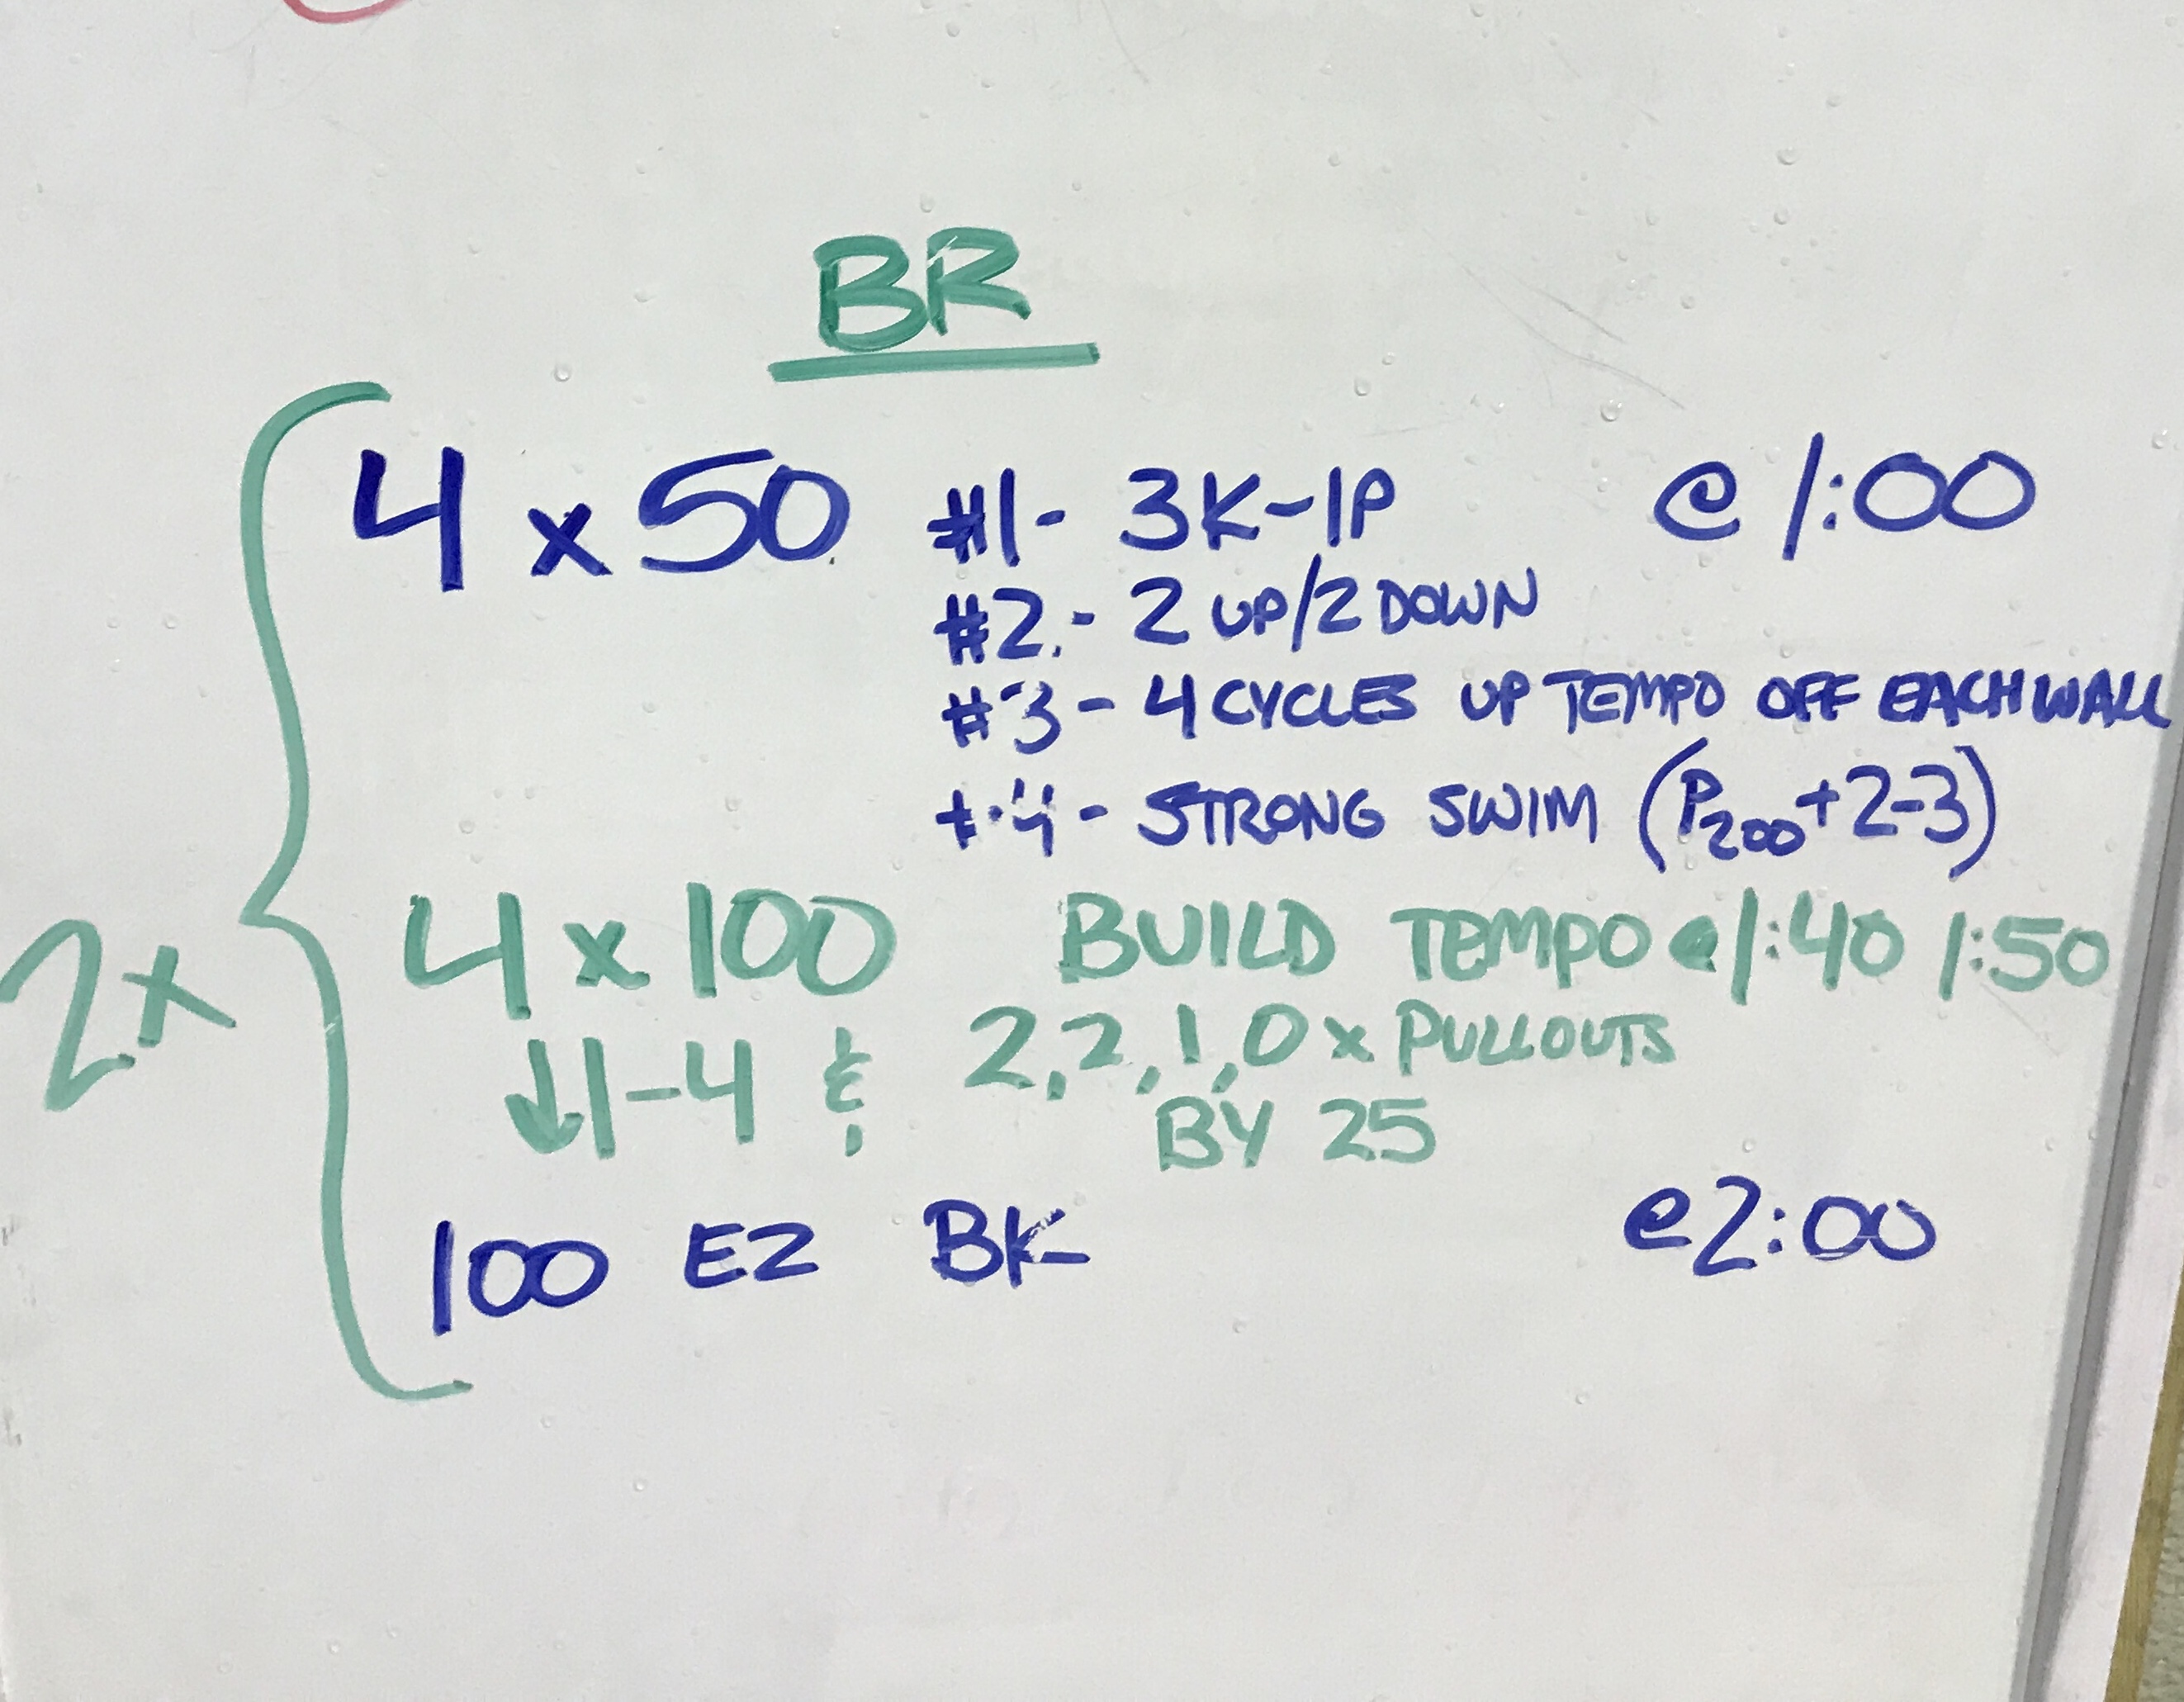 BR
4 x 50 #1 - 3K-1P @ 1:00
#2. - 2 UP/2 DOWN
#3 - 4 CYCLES UP TEMPO OFF EACH WALL
#4 - STRONG SWIM (P200+2-3)
2x
4 x 100 BUILD TEMPO @ 1:40 1:50
↓1-4 & 2,2,1,0 x PULLOUTS
BY 25
100 EZ BK @ 2:00